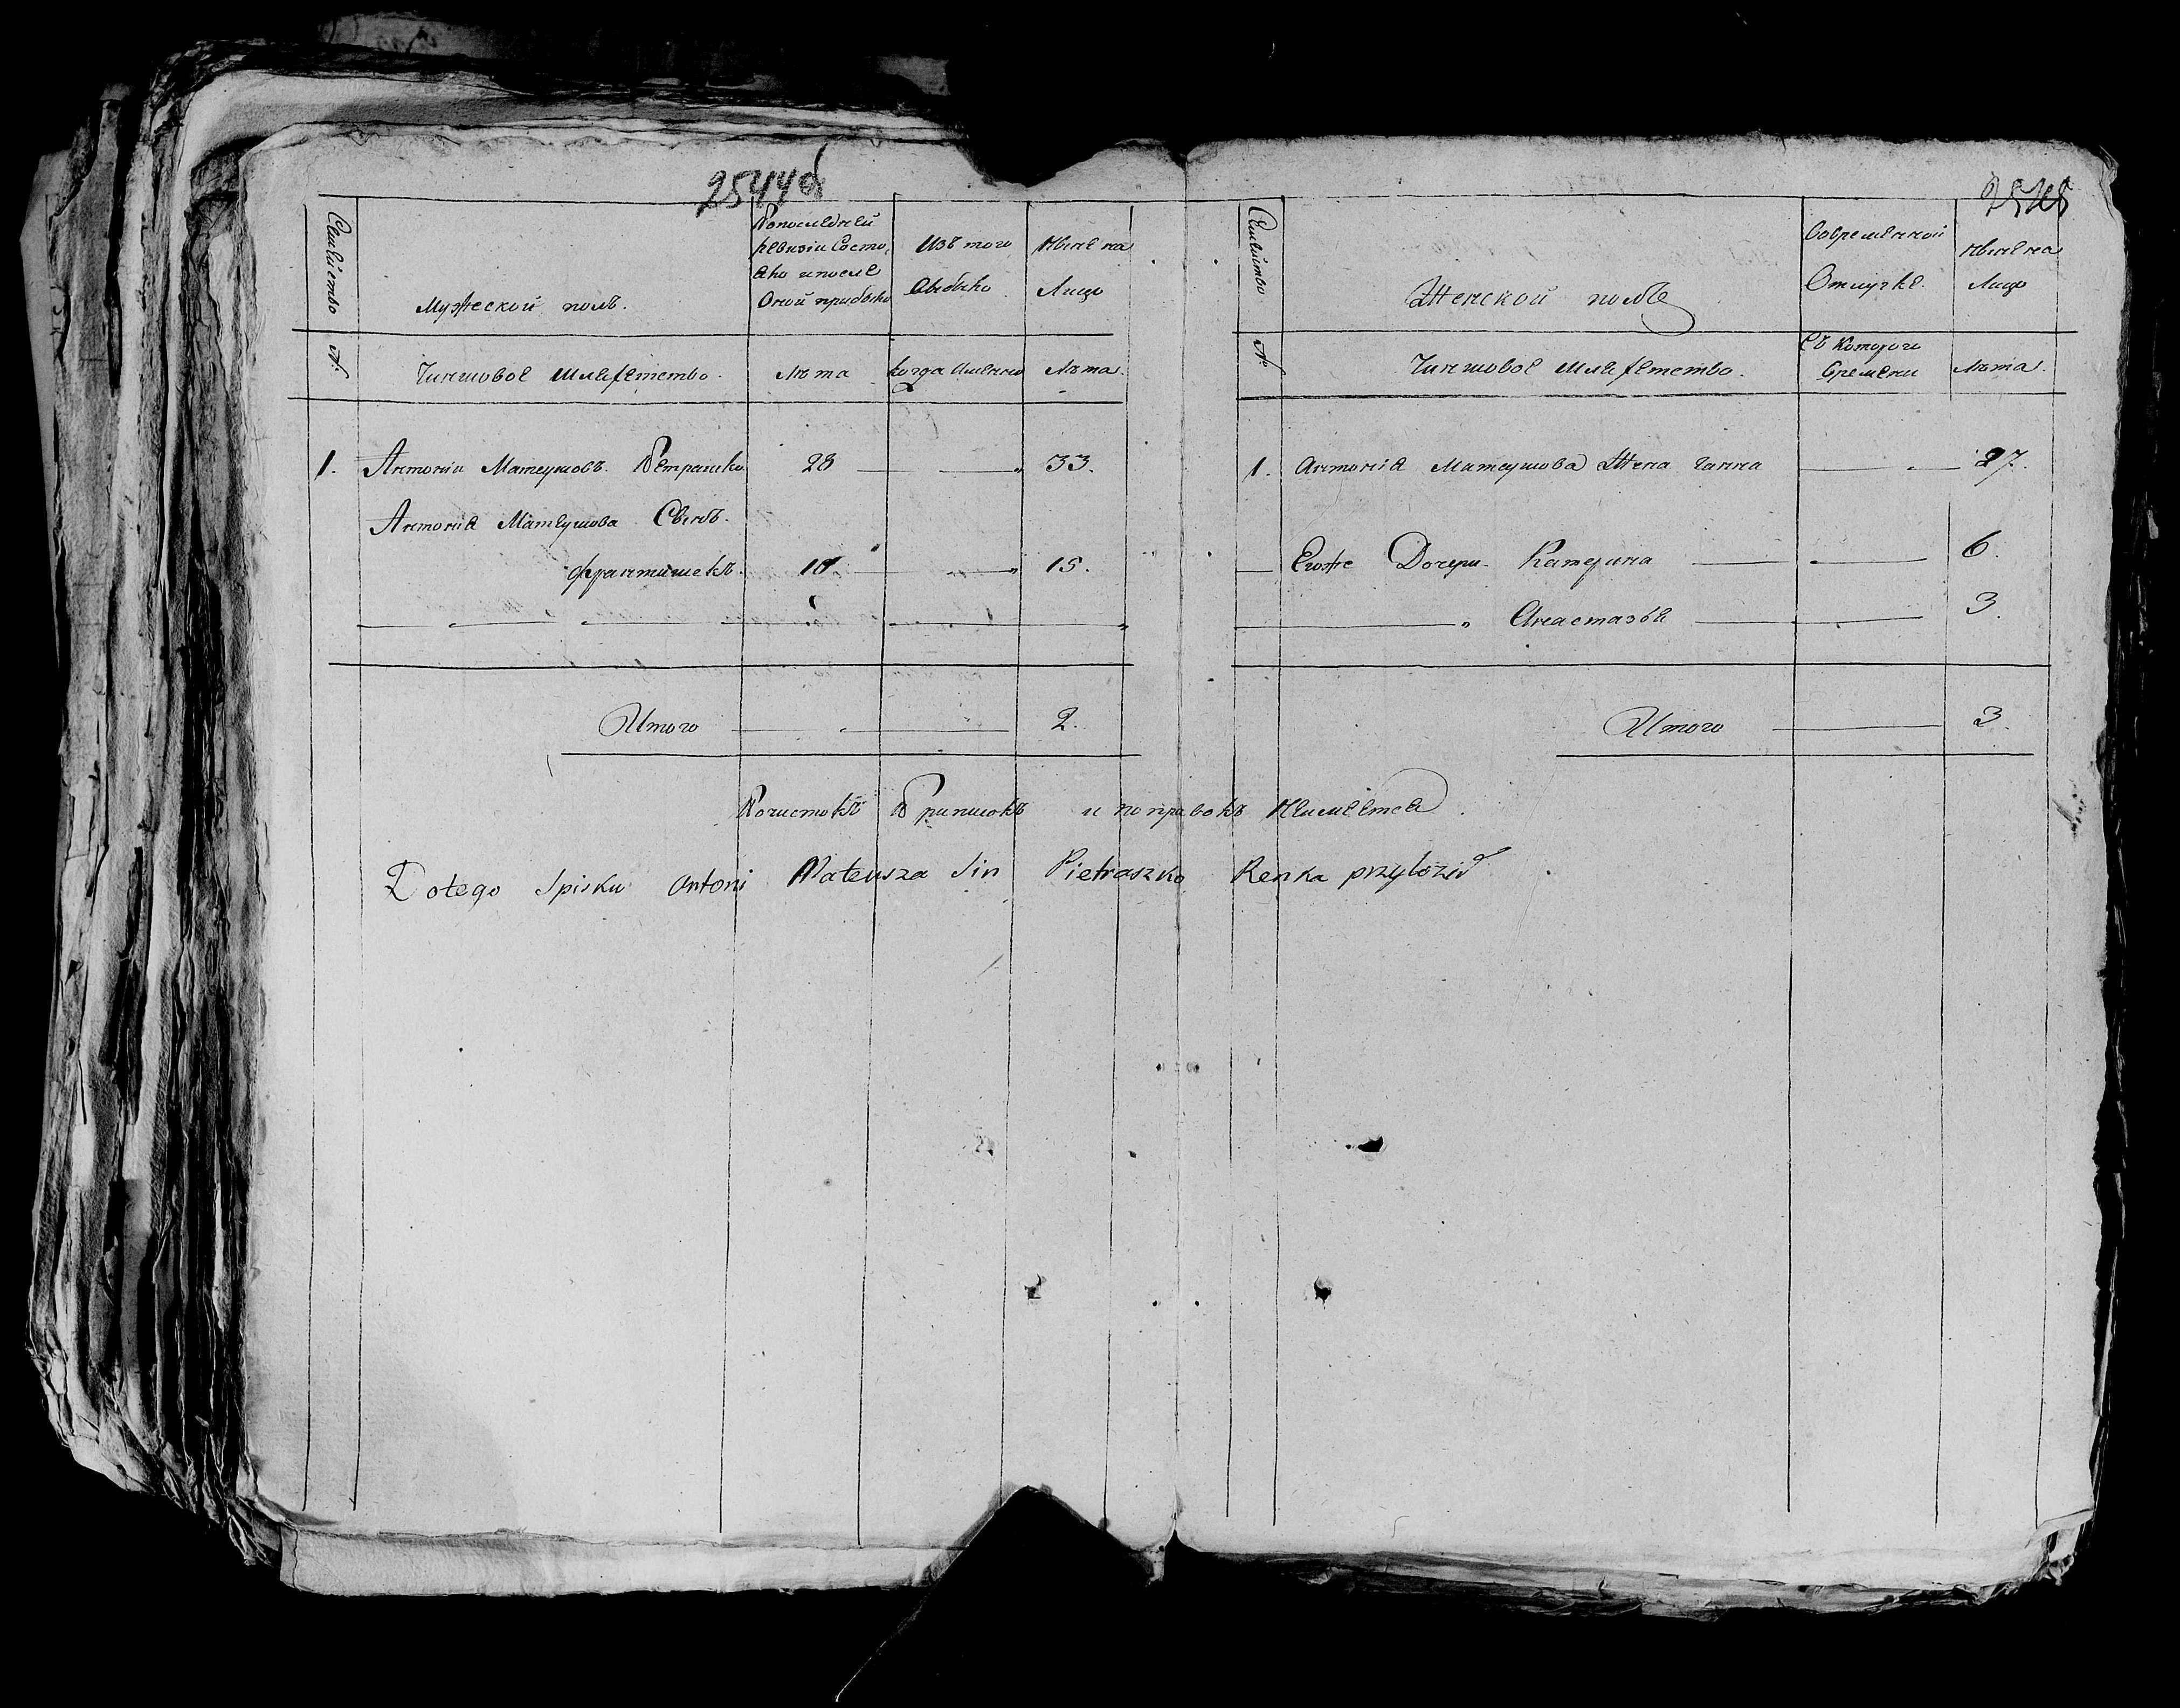 2544об
Семейство
Мужеской полъ.
Попоследней
ревизіи Состо
яло ипосле
Оной прибыло
Изъ того
Выбыло
Ныне на
Лицо
№
Чиншовое Шляхетство.
Лѣта
Когда Именно
Лѣта.
1. Антоній Матеушовъ Петрашко 28 33.
Антонія Матеушова Сынъ.
Франтишекъ. 10 15.
Итого 2.
2545
Семейство
Женской полъ
Вовременной
Отлучке.
Ныне на
Лицо
№
Чиншовое Шляхетство.
Съ Которого
Времени
Лѣта.
1. Антонія Матеушова Жена Ганна 27.
Егоже Дочери Катерина 6.
Анастазія 3
Итого 3.
Почистокъ Приписокъ и поправокъ Неимеется.
Dotego Spisku Antoni Mateusza Sin Pietraszko Renka przyłoził